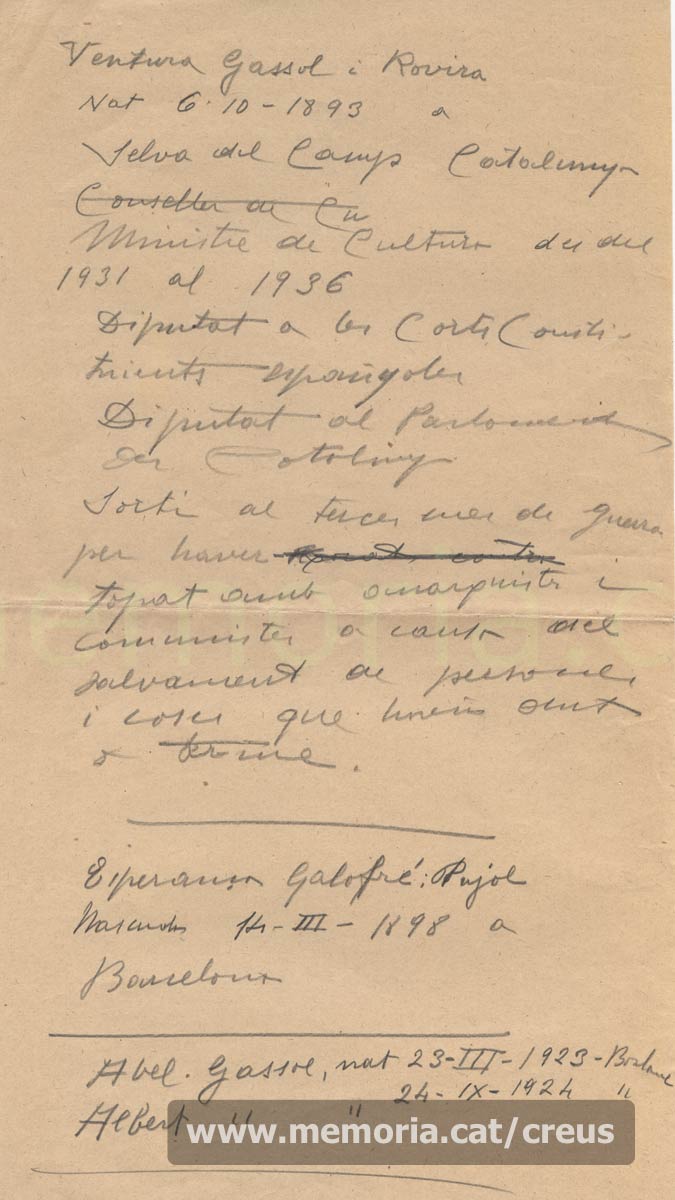 Ventura Gassol i Rovira
Nat 6-10-1893 a
Selva del Camp Catalunya
Conseller de Cu
Ministre de Cultura des del
1931 al 1936
Diputat a les Corts Consti-
tuients españyoles
Diputat al Parlament
de Catalunya
Sortí al tercer mes de guerra
per haver contra
topat amb anarquistes i
comunistes a causa del
salvament de persones
i coses que havia dut
a terme.
Esperança Galofré i Pujol
Nascuda 14-III-1898 a
Barcelona
Abel. Gassol, nat 23-III-1923-
24-IX-1924 "
Albert " "
memoria.c
www.memoria.cat/creus